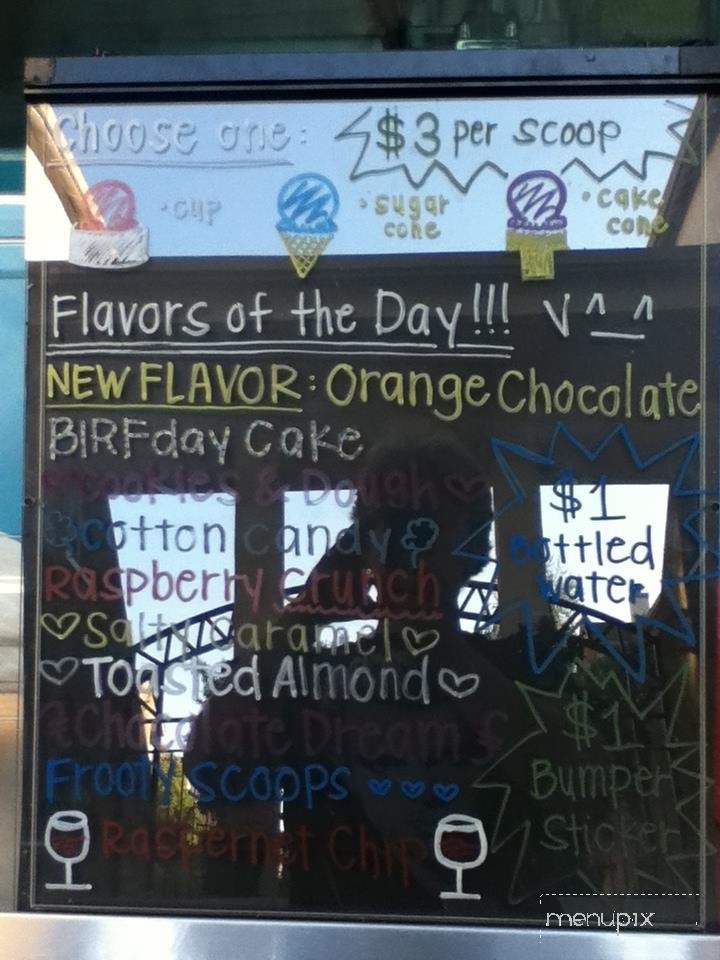 Choose one: $3 per scoop
• cup • sugar cone • cake cone
Flavors of the Day!!! V^_^
NEW FLAVOR: Orange Chocolate
BIRFday Cake
♡Cookies & Dough♡
Cotton Candy
Raspberry Crunch
♡Salty Caramel♡
♡Toasted Almond♡
Chocolate Dream
Frooty Scoops ♡♡♡
Raspernet Chip
$1
Bottled
water
$1
Bumper
Sticker
menupix